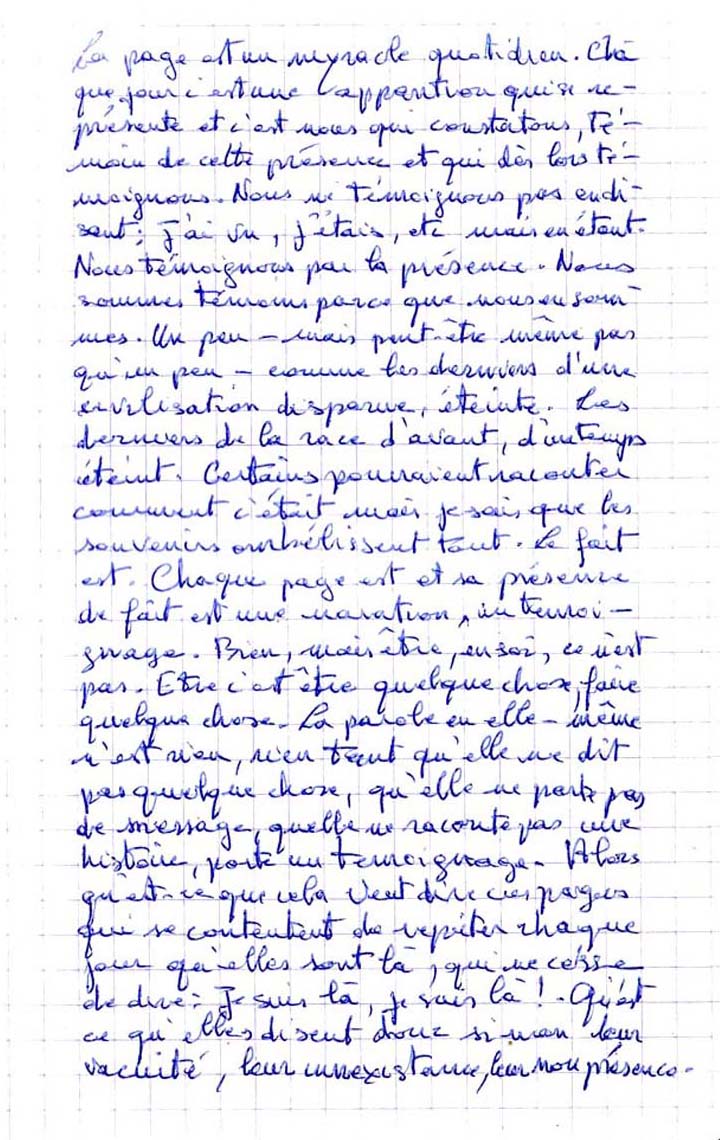 La page est un myracle quotidien. Cha
que jour c'est une apparition qui se re-
présente et c'est nous qui constatons, té-
moin de cette présence et qui dès lors té-
moignons. Nous ne témoignons pas en di-
sant: j'ai vu, j'étais, etc mais en étant.
Nous témoignons par la présence. Nous
sommes témoins parce que nous en som-
mes. Un peu – mais peut-être même pas
qu'un peu – comme les derniers d'une
civilisation disparue, éteinte. Les
derniers de la race d'avant, d'un temps
éteint. Certains pourraient raconter
comment c'était mais je sais que les
souvenirs embélissent tout. Le fait
est. Chaque page est et sa présence
de fait est une naration, un témoi-
gnage. Bien, mais être, en soi, ce n'est
pas. Etre c'est être quelque chose, faire
quelque chose. La parole en elle-même
n'est rien, rien tant qu'elle ne dit
pas quelque chose, qu'elle ne porte pas
de message, quelle ne raconte pas une
histoire, porte un témoignage. Alors
qu'est-ce que cela veut dire ces pages
qui se contentent de répéter chaque
jour qu'elles sont là, qui ne cesse
de dire: Je suis là, je suis là! - Qu'est
ce qu'elles disent donc sinon leur
vacuité, leur innexistance, leur non présence.